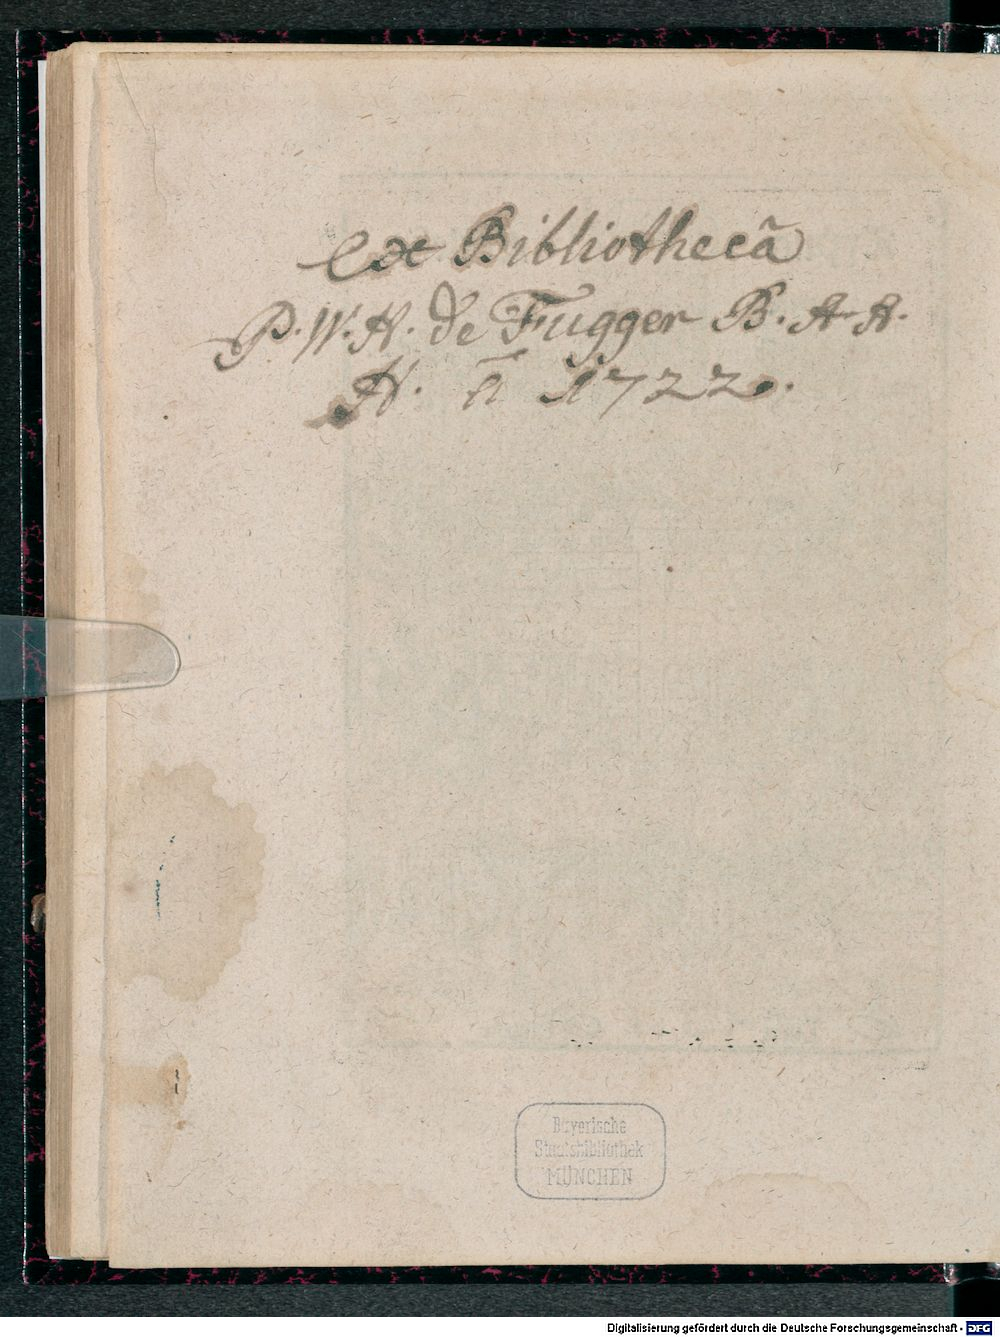 ex Bibliothecâ
P. W. A. de Fugger B. A A.
A. ñ 1722.
Bayerische
Staatsbibliothek
MÜNCHEN
Digitalisierung gefördert durch die Deutsche Forschungsgemeinschaft - DFG